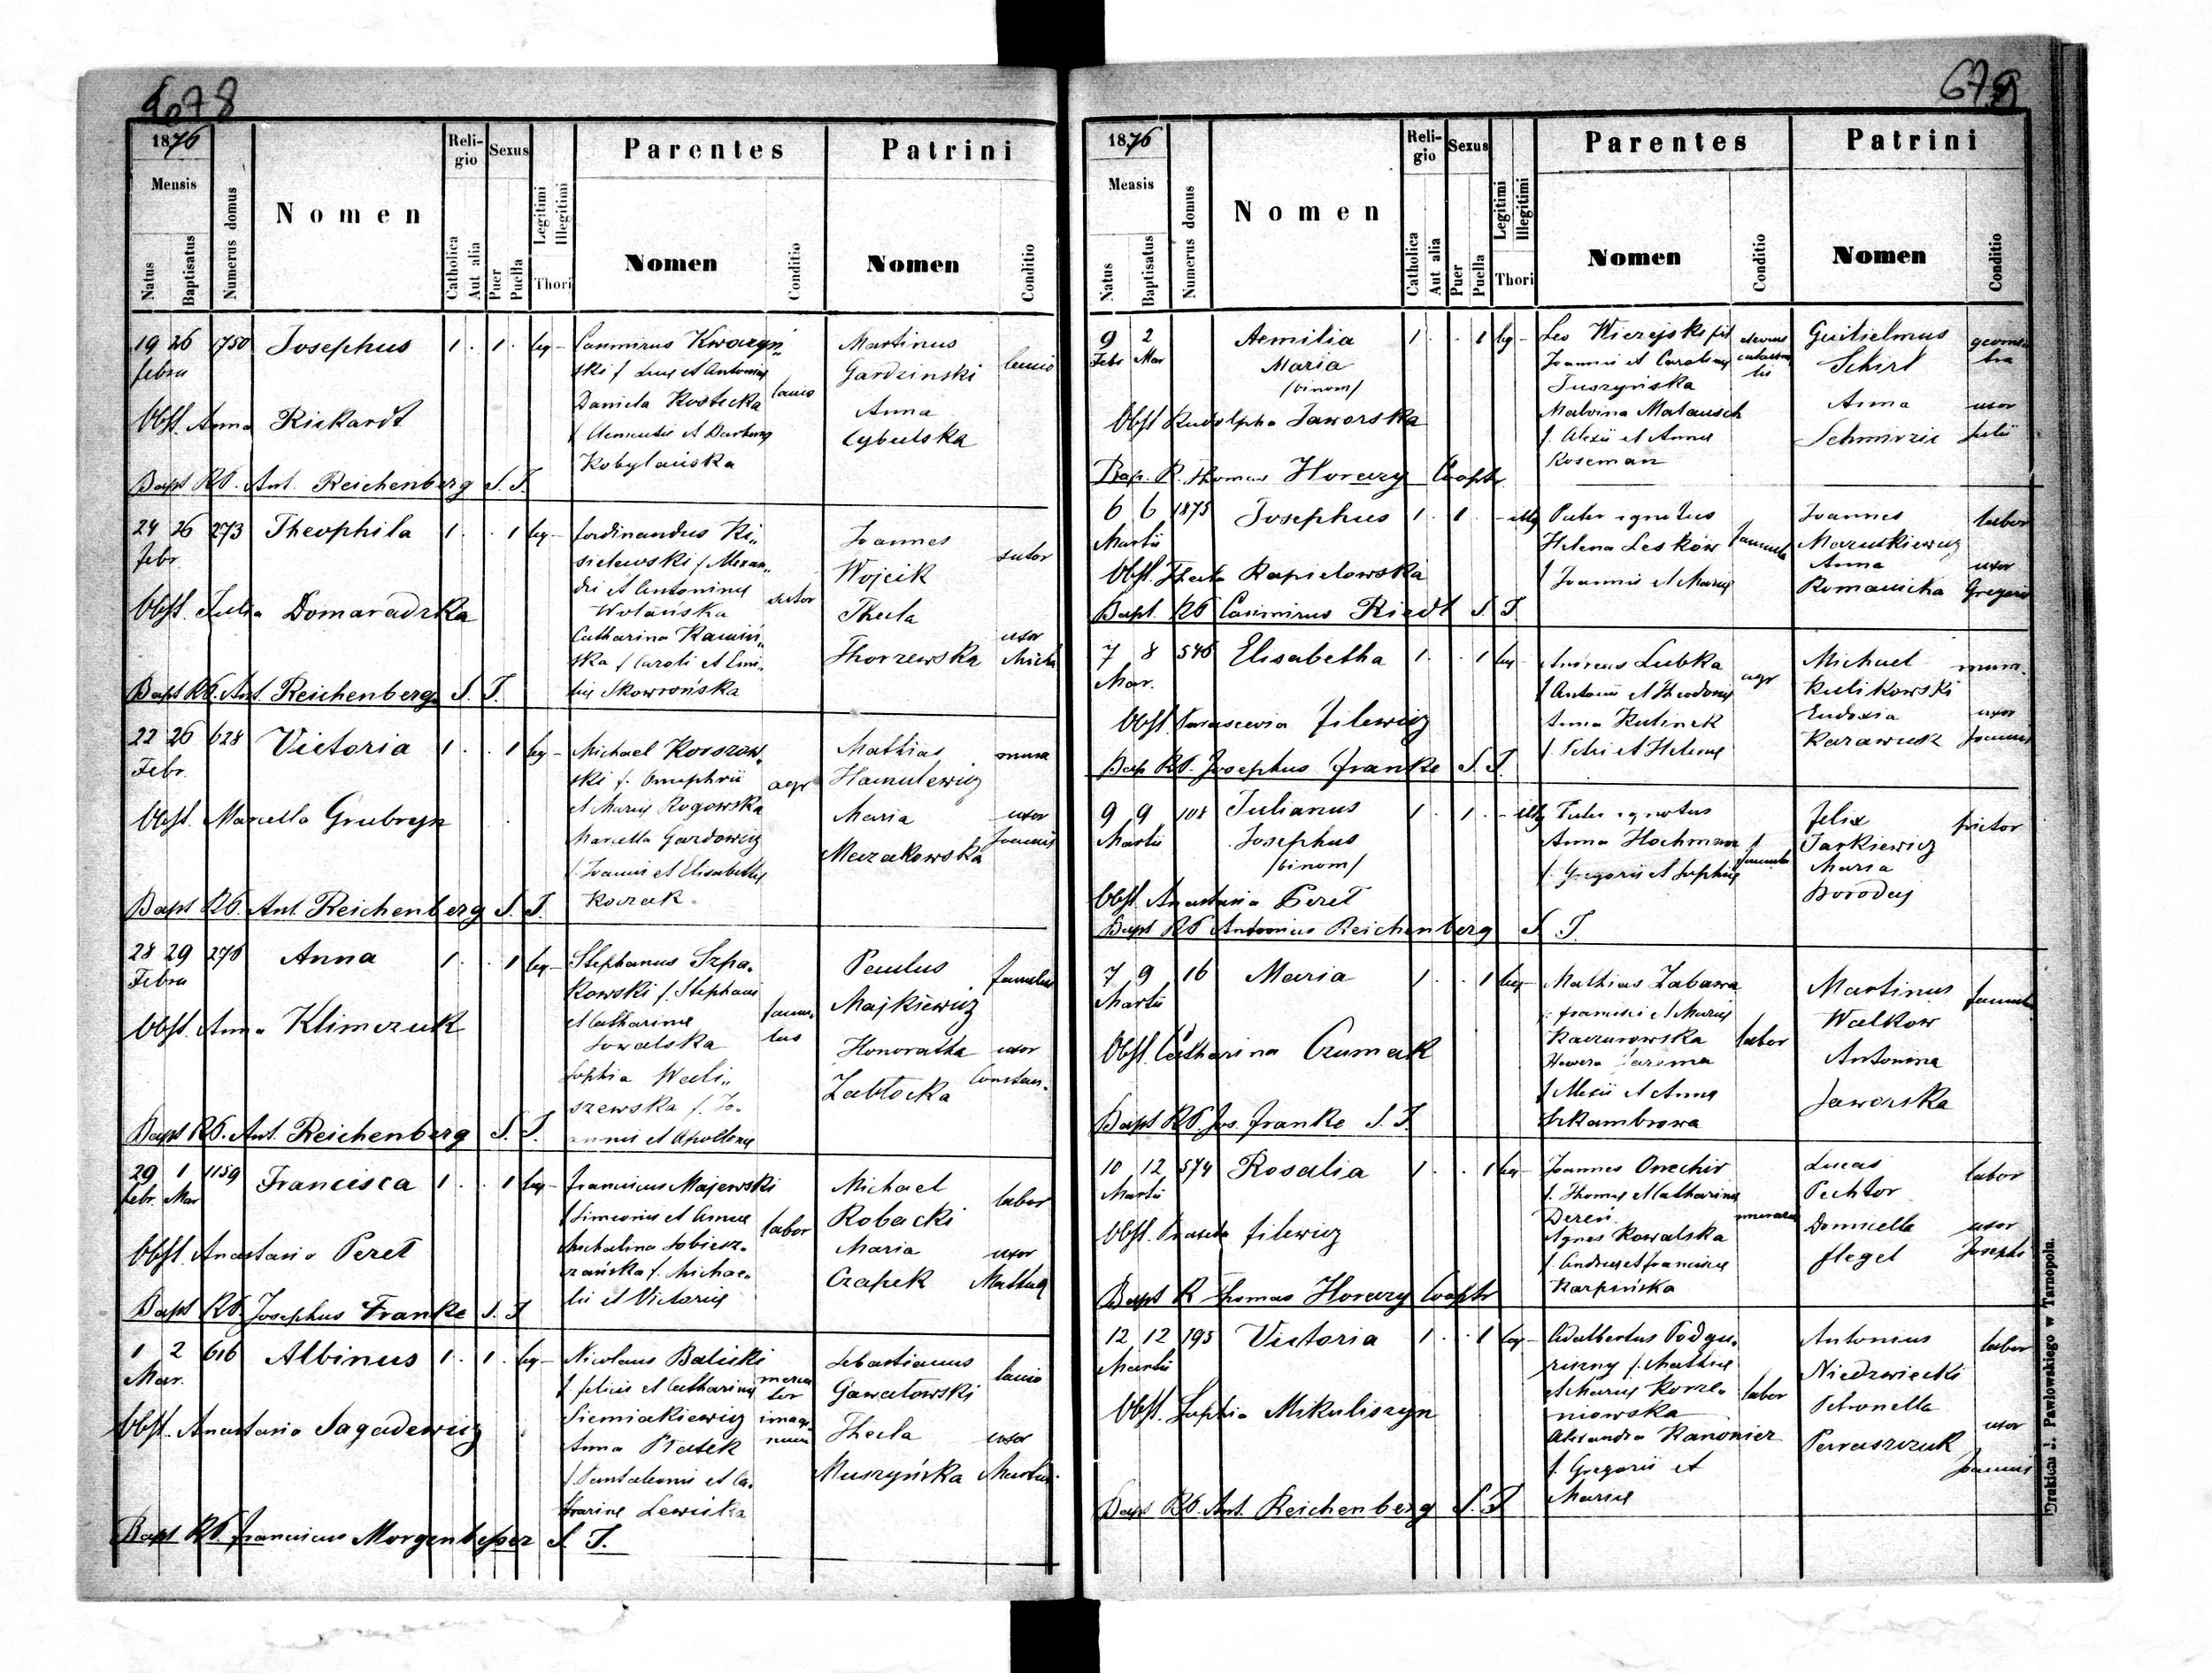 678
1876
Mensis
Natus
Baptisatus
Numerus domus
Nomen
Religio
Catholica
Aut alia
Sexus
Puer
Puella
Legitimi
Illegitimi
Thori
Parentes
Nomen
Conditio
Patrini
Nomen
Conditio
19 26 1750 Josephus 1 . 1 . leg -
febru
Casimirus Kwaryń„
ski f Lucæ et Antoniæ
Daniela Kostecka
f Clementis et Barbaræ
Kobylańska
lanio
Martinus
Gardzinski
Anna
Cybulska
lanio
Obst. Anna Rickardt
Bapt RP. Ant. Reichenberg S. J.
24 26 273 Theophila 1 . . 1 leg -
febr
Ferdinandus Ki„
sielewski f Alexan„
dri et Antoninæ
Wolańska
Catharina Kamiń„
ska f Caroli et Emi„
liæ Skowrońska
sutor
Joannes
Wojcik
Thecla
Thorzewska
sutor
uxor
Micha
Obst. Julia Domaradzka
Bapt RP. Ant. Reichenberg S. J.
22 26 628 Victoria 1 . . 1 leg -
Febr.
Michael Korszow„
ski f. Onuphrii
et Mariæ Rogowska
Marcella Gardowicz
f. Joannis et Elisabethæ
Kozak
agr
Mathias
Hamulewicz
Maria
Mazakowska
mura
uxor
Joannis
Obst. Marcella Grubryn
Bapt RP. Ant. Reichenberg S. J.
28 29 276 Anna 1 . . 1 leg -
Febru
Stephanus Szpa„
kowski f. Stephani
et Catharinæ
Kowalska
Sophia Wali„
szewska f. Jo„
annis et Apolloniæ
famu„
lus
Paulus
Majkiewicz
Honoratha
Zabłocka
famulus
uxor
Constan.
Obst. Anna Klimczuk
Bapt RP. Ant. Reichenberg S. J.
29 1 1159 Francisca 1 . . 1 leg -
febr. Mar
Franciscus Majewski
f Simeonis et Annæ
Michalina Sobiesz„
czańska f. Michae„
lis et Victoriæ
labor
Michael
Robacki
Maria
Czapek
labor
uxor
Matthæi
Obst. Anastasia Peret
Bapt RP. Josephus Franke S. J
1 2 616 Albinus 1 . 1 . leg -
Mar.
Nicolaus Baliski
f. felicis et Catharinæ
Siemiakiewicz
Anna Ptasek
f. Pantaleonis et Ca„
tharinæ Lewicka
merca
tor
imagi
num
Sebastianus
Gawałowski
Thecla
Muszyńska
lanio
uxor
Martini
Obst. Anastasia Sagadewicz
Bapt RP. Franciscus Morgenbesser S. J.
679
1876
Mensis
Natus
Baptisatus
Numerus domus
Nomen
Religio
Catholica
Aut alia
Sexus
Puer
Puella
Legitimi
Illegitimi
Thori
Parentes
Nomen
Conditio
Patrini
Nomen
Conditio
9 2 Aemilia 1 . . 1 leg -
Febr Mar Maria
/binom/
Leo Wierzejski fil
Joannis et Carolinæ
Tuszyńska
Malvina Matausch
f. Alexii et Annæ
Roseman
Guilielmus
Schirl
Anna
Schmirzic
geome
tra
uxor
Julii
Obst Rudolpha Jaworska
Bap. R. Thomas Horaczy Cooptr
6 6 1875 Josephus 1 . 1 . - illeg
Martii
Pater ignotus
Helena Leskow
f Joannis et Mariæ
famula
Joannes
Mazurkiewicz
Anna
Romanicha
labor
uxor
Gregorii
Obst. Thecla Rapielowska
Bapt. RP Casimirus Riedl S. J
7 8 546 Elisabetha 1 . . 1 leg
Mar.
Andreas Lubka
f Antonii et Theodoræ
Anna Kulinek
f. Petri et Helenæ
agr
Michael
Kulikowski
Eudoxia
Karawuk
mura.
uxor
Joannis
Obst Parascevia Filewicz
Bap RP. Josephus Franke S. J.
9 9 108 Julianus 1 . 1 . - illeg
Martii Josephus
/binom/
Pater ignotus
Anna Hochman
f. Gregorii et Sophiæ
famula
Felix
Jarkiewicz
Maria
Borodaj
pictor
Obst. Anastasia Peret
Bapt RP Antonius Reichenberg S J.
7 9 16 Maria 1 . . 1 leg -
Martii
Mathias Zabawa
f. Francisci et Mariæ
Kaczurowska
f Alexii et Annæ
Szkambrowa
labor
Martinus
Walkow
Antonina
Jaworska
famulus
Obst. Catharina Czumak
Bapt RP. Jos. Franke S. J.
10 12 574 Rosalia 1 . . 1 leg -
Martii
Joannes Onechir
f. Thomæ et Catharinæ
Dereń
Agnes Kowalska
f. Andreæ et Franciscæ
Karpińska
murarius
Lucas
Pechtor
Domicella
Flegel
labor
uxor
Josephi
Obst. Praxeda Filewicz
Bapt R Thomas Horaczy Cooptr
12 12 195 Victoria 1 . . 1 leg -
Martii
Adalbertus Podgu„
rszny f. Mathiæ
et Mariæ Korze„
niowska
Alexandra Kanonier
f. Gregorii et
Mariæ
labor
Antonius
Niedzwiecki
Petronella
Paraszczuk
labor
uxor
Joannis
Obst. Sophia Mikuliszyn
Bapt RP. Ant. Reichenberg S. J
Drukiem J. Pawłowskiego w Tarnopolu.